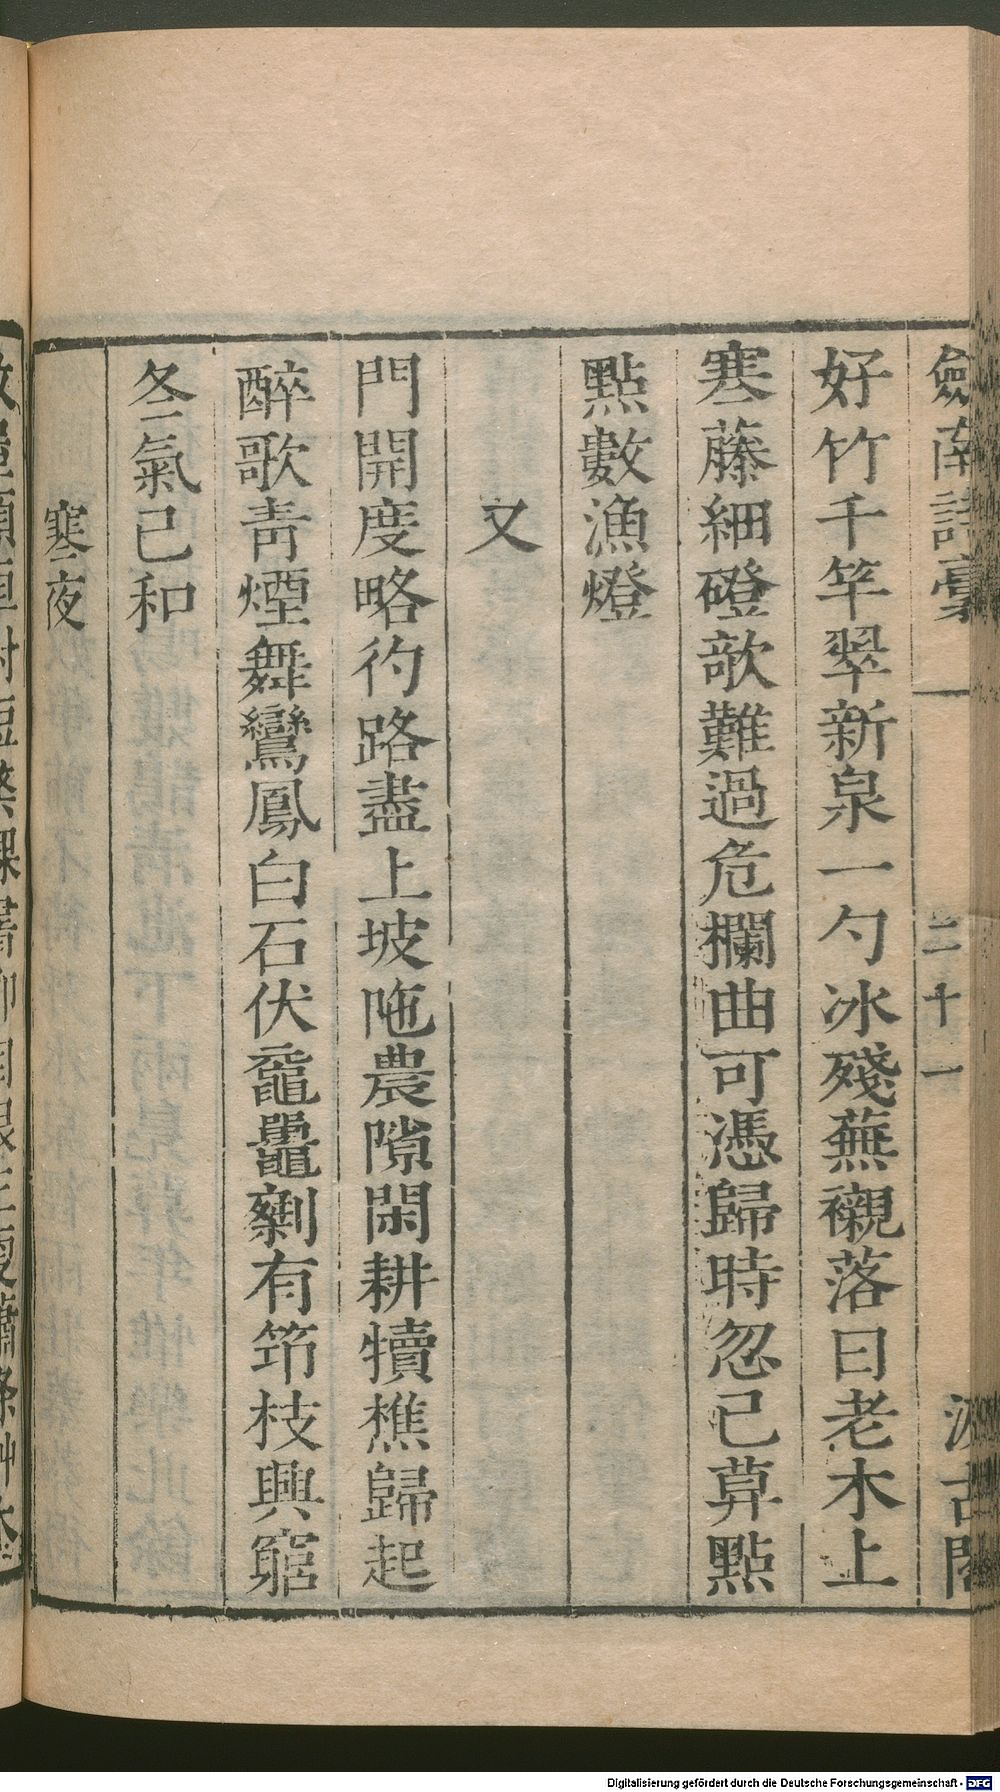 劍南詩稾
二十一
汲古閣
好竹千竿翠新泉一勺冰殘蕪襯落日老木上
寒藤細磴欹難過危欄曲可憑歸時忽已莫點
點數漁燈
又
門開度略彴路盡上坡陁農隙閑耕犢樵歸起
醉歌青煙舞鸞鳳白石伏黿鼉剩有筇枝興窮
冬氣已和
寒夜
Digitalisierung gefördert durch die Deutsche Forschungsgemeinschaft - DFG